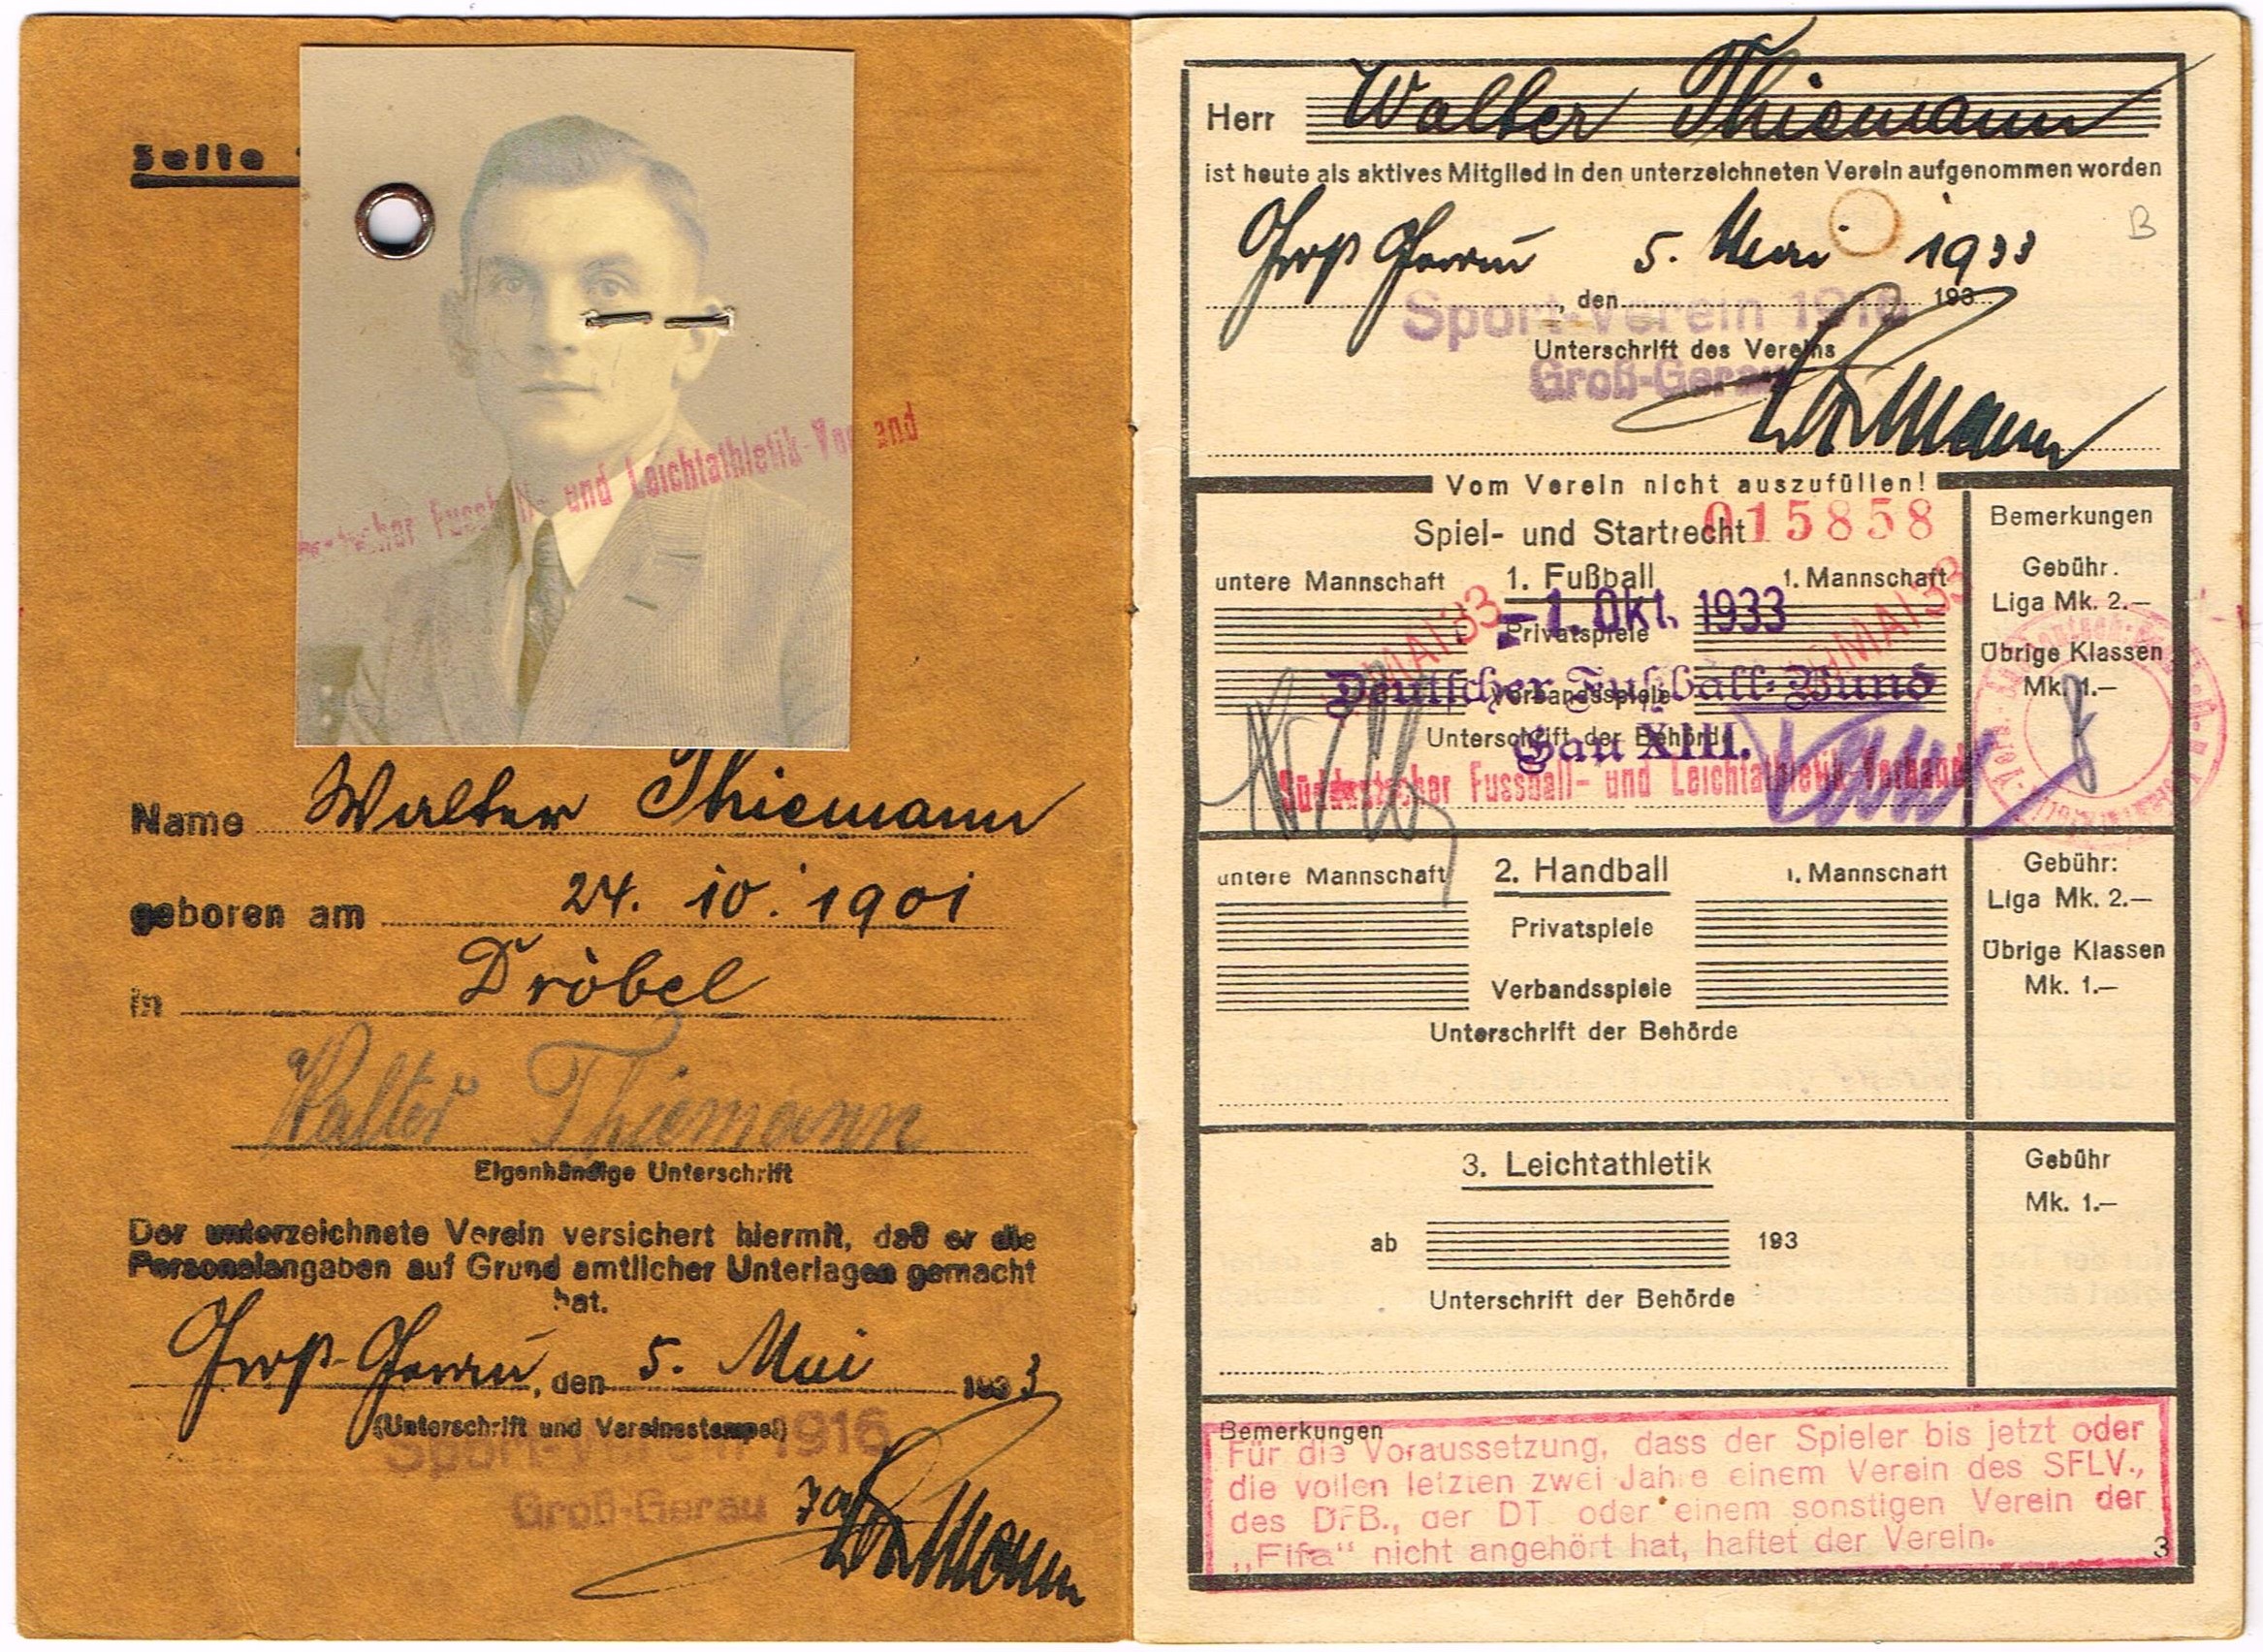 Seite
Deutscher Fussball- und Leichtathletik-Verband
Name Walter Thiemann
geboren am 24. 10. 1901
in Dröbel
Walter Thiemann
Eigenhändige Unterschrift
Der unterzeichnete Verein versichert hiermit, daß er die
Personalangaben auf Grund amtlicher Unterlagen gemacht
hat.
Groß-Gerau, den 5. Mai 1933
(Unterschrift und Vereinsstempel)
Sport-Verein 1916
Groß-Gerau
Herr Walter Thiemann
ist heute als aktives Mitglied in den unterzeichneten Verein aufgenommen worden
Groß Gerau 5. Mai 1933
, den 193
B
Sport-Verein 1916
Unterschrift des Vereins
Groß-Gerau
Vom Verein nicht auszufüllen!
Spiel- und Startrecht 015858
Bemerkungen
untere Mannschaft 1. Fußball 1. Mannschaft
Gebühr.
Liga Mk. 2.—
-1. Okt. 1933
Privatspiele
MAI 33
MAI 33
Übrige Klassen
Mk. 1.—
Deutscher Fußball-Bund
Verbandsspiele
Unterschrift der Behörde
Gau XIII.
Süddeutscher Fussball- und Leichtathletik-Verband
untere Mannschaft 2. Handball 1. Mannschaft
Gebühr:
Liga Mk. 2.—
Privatspiele
Übrige Klassen
Mk. 1.—
Verbandsspiele
Unterschrift der Behörde
3. Leichtathletik
Gebühr
Mk. 1.—
ab 193
Unterschrift der Behörde
Bemerkungen
Für die Voraussetzung, dass der Spieler bis jetzt oder
die vollen letzten zwei Jahre einem Verein des SFLV.,
des DFB., der DT oder einem sonstigen Verein der
„Fifa" nicht angehört hat, haftet der Verein.
3